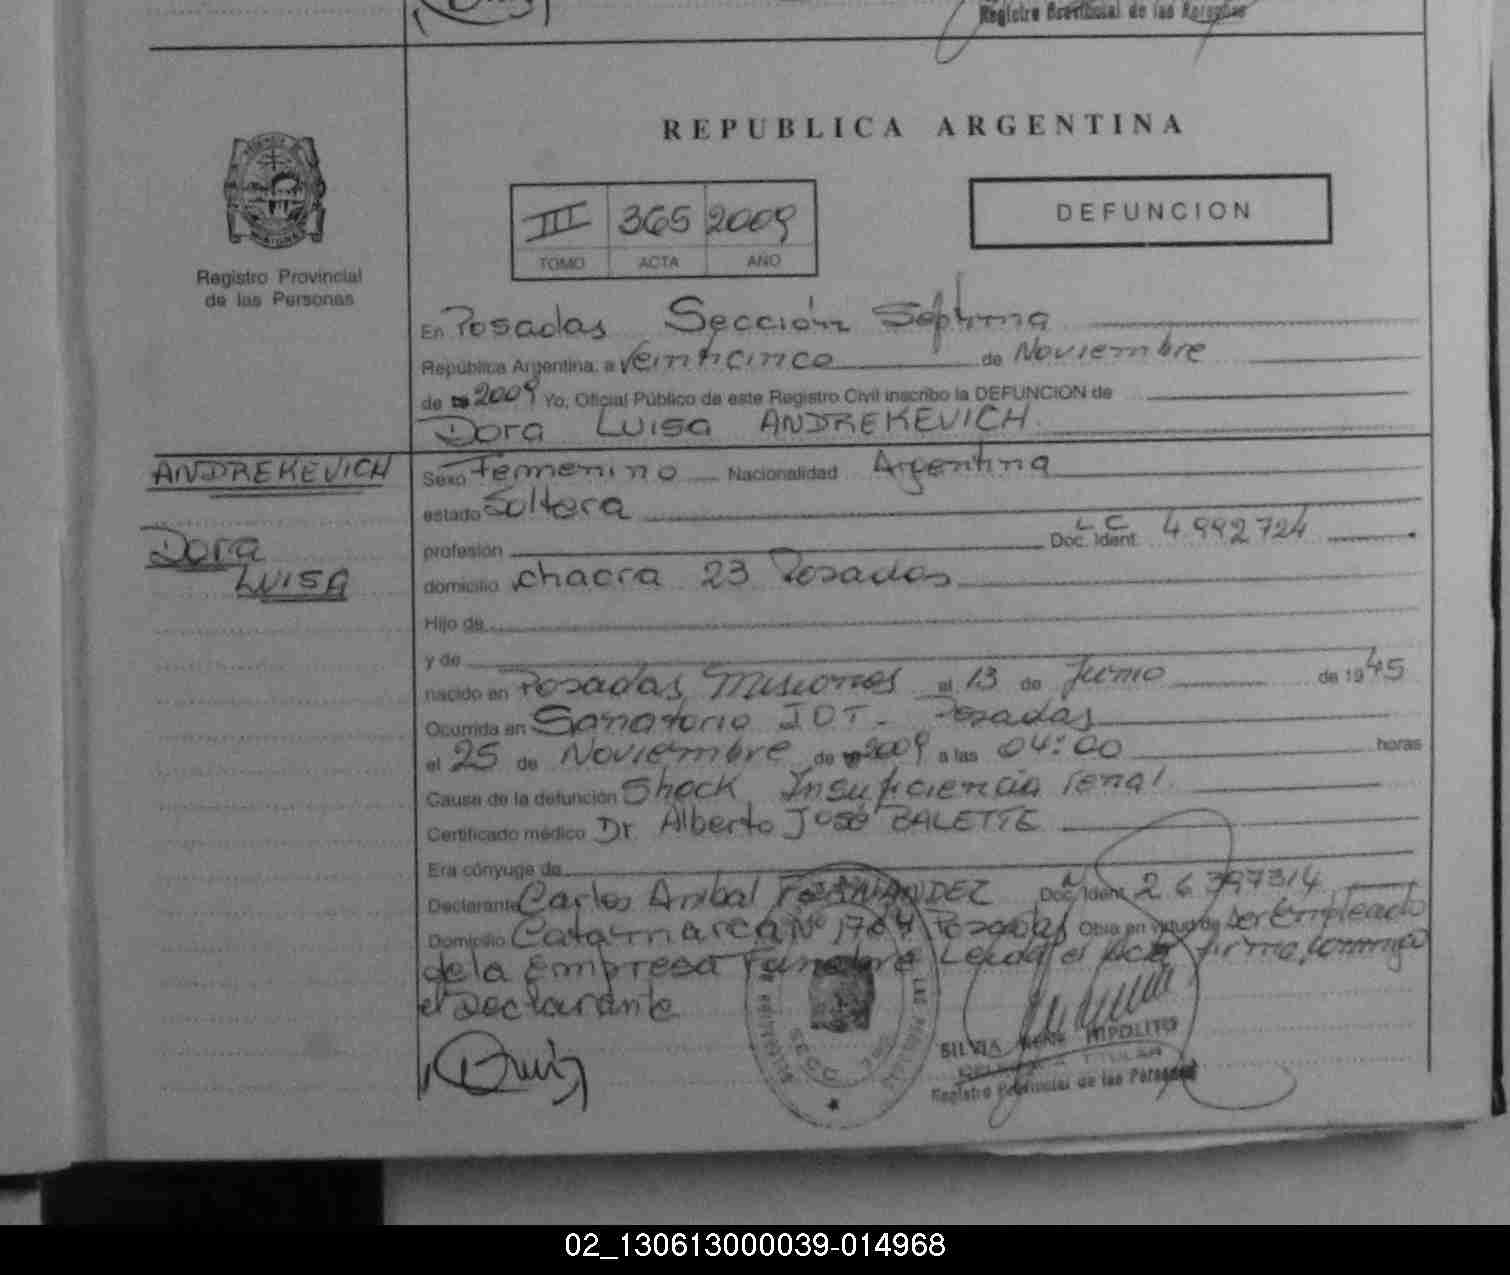 Registro Provincial de las Personas
REPUBLICA ARGENTINA
III 365 2009
TOMO ACTA AÑO
DEFUNCION
Registro Provincial
de las Personas
En Posadas Sección Septima
República Argentina, a Veinticinco de Noviembre
de 2009 Yo, Oficial Público de este Registro Civil inscribo la DEFUNCION de
Dora Luisa ANDREKEVICH
ANDREKEVICH
Dora
LUISA
Sexo Femenino Nacionalidad Argentina
estado Soltera
profesión L C Doc. Ident. 4.992724
domicilio chacra 23 Posadas
Hijo de
y de
nacido en Posadas Misiones el 13 de Junio de 1945
Ocurrida en Sanatorio I.O.T. Posadas
el 25 de Noviembre de 2009 a las 04:00 horas
Causa de la defunción Shock Insuficiencia renal
Certificado médico Dr. Alberto José BALETTE
Era cónyuge de
Declarante Carlos Anibal FERNANDEZ Doc. Ident. 26397314
Domicilio Catamarca Nº 1764 Posadas Obra en virtud de Ser Empleado
de la Empresa Funebre Leida el Acta firma conmigo
el Declarante
SILVIA HIPOLITO
TITULAR
Registro Provincial de las Personas
02_130613000039-014968